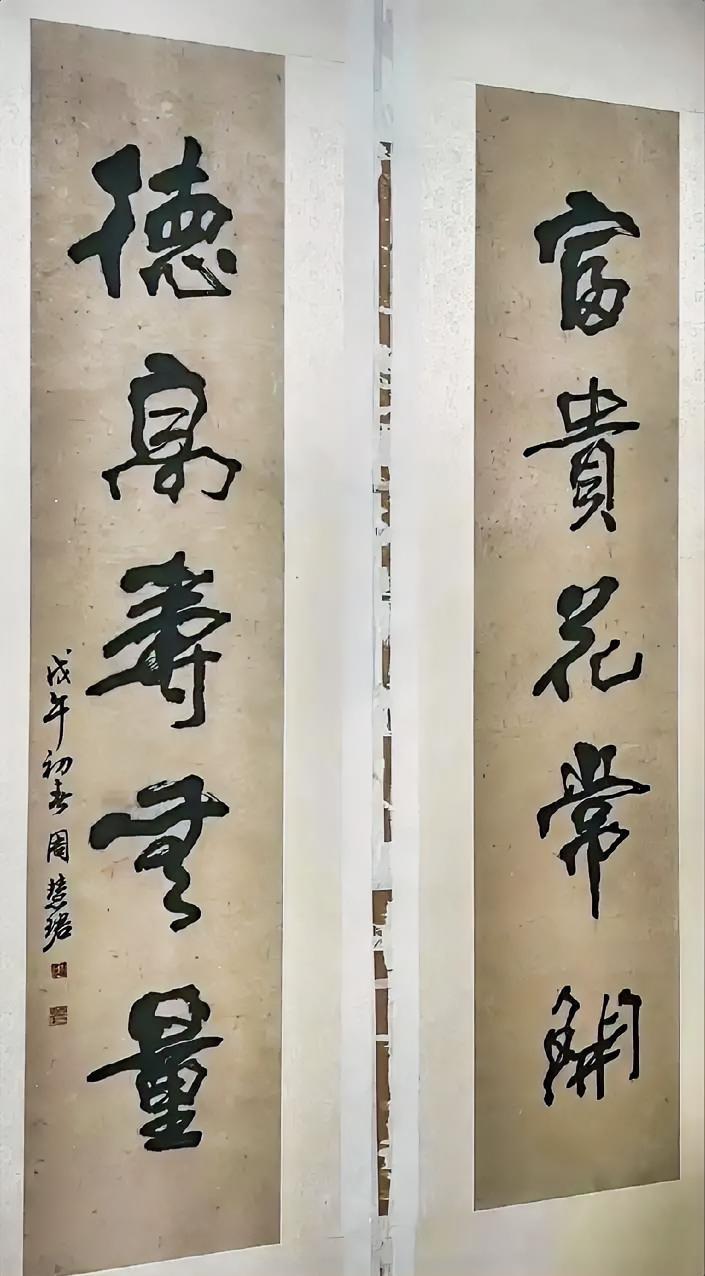 富貴花常開
德高壽無量
戊午初春周慧珺